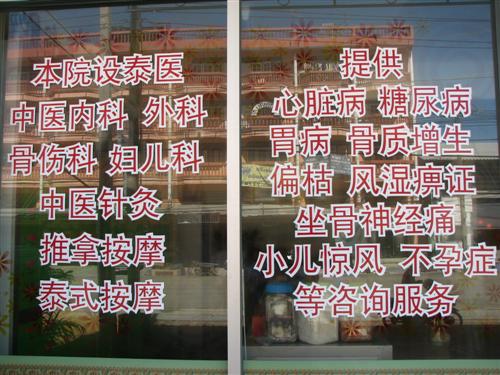 本院设泰医
中医内科 外科
骨伤科 妇儿科
中医针灸
推拿按摩
泰式按摩
提供
心脏病 糖尿病
胃病 骨质增生
偏枯 风湿痹证
坐骨神经痛
小儿惊风 不孕症
等咨询服务